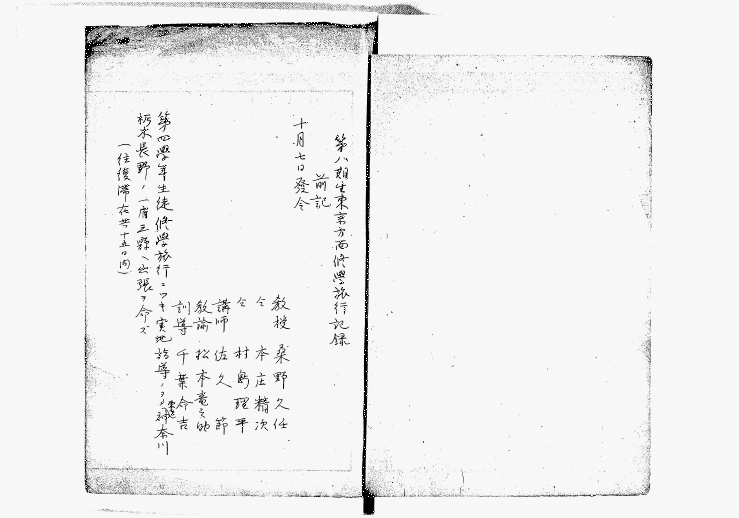 第八期生東京方面修學旅行記録
前記
十月七日發令
教授 桑野久任
仝 本庄精次
仝 村島理平
講師 佐久節
教諭 松本竜之助
訓導 千葉命吉
第四學年生徒修學旅行ニツキ実地指導ノタメ東京神奈川
栃木長野ノ一府三縣ヘ出張ヲ命ズ
(往復滞在共十五日間)